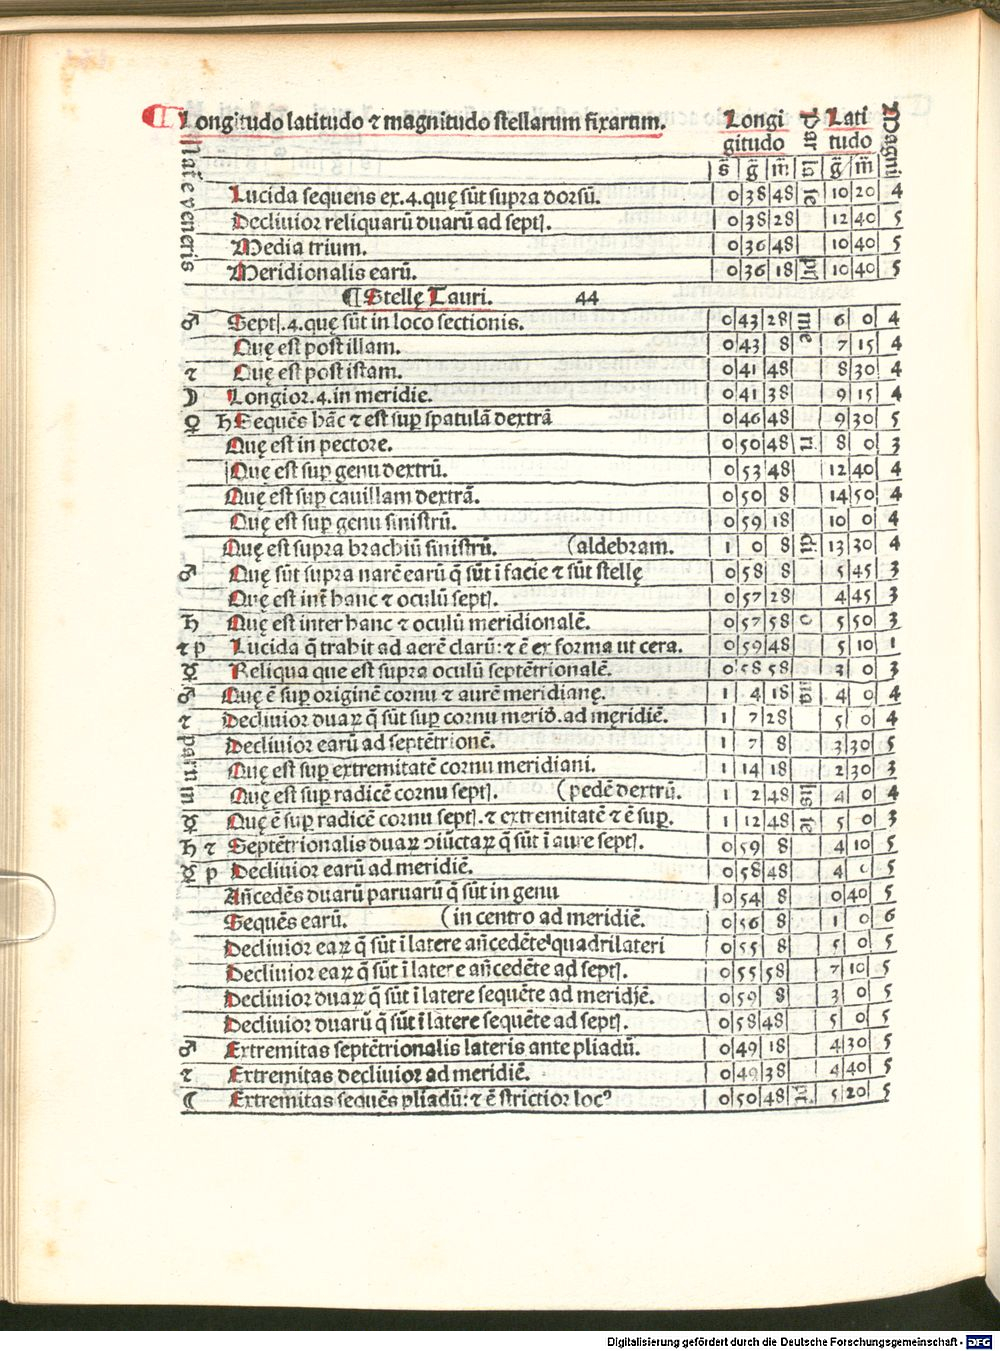 Longitudo latitudo ⁊ magnitudo stellarum fixarum. Longi gitudo Par Lati tudo Magni
s̄ g̅ m̅ la g̅ m̅
Nāt e veneris
Lucida sequens ex .4. quę sūt supra dorsū. 0 38 48 se 10 20 4
Declivior reliquarū duarū ad septꝉ. 0 38 28 12 40 5
Media trium. 0 36 48 10 40 5
Meridionalis earū. 0 36 18 pt 10 40 5
¶ Stellę Tauri. 44
♂ Septꝉ .4. quę sūt in loco sectionis. 0 43 28 me 6 0 4
Quę est post illam. 0 43 8 7 15 4
⁊ Quę est post istam. 0 41 48 8 30 4
☽ Longior .4. in meridie. 0 41 38 9 15 4
♀ ♄ Sequēs hāc ⁊ est sup̱ spatulā dextrā 0 46 48 9 30 5
Quę est in pectore. 0 50 48 ri 8 0 3
Quę est sup̱ genu dextrū. 0 53 48 12 40 4
Quę est sup̱ cauillam dextrā. 0 50 8 14 50 4
Quę est sup̱ genu sinistrū. 0 59 18 10 0 4
Quę est supra brachiū sinistrū. (aldebram. 1 0 8 di 13 30 4
♂ Quę sūt supra narē earū q̄ sūt ī facie ⁊ sūt stellę 0 58 8 5 45 3
Quę est int̄ hanc ⁊ oculū septꝉ. 0 57 28 4 45 3
♄ Quę est inter hanc ⁊ oculū meridionalē. 0 57 58 o 5 50 3
⁊ p Lucida q̄ trahit ad aerē clarū: ⁊ ē ex forma ut cera. 0 59 48 5 10 1
☿ Reliqua que est supra oculū septētrionalē. 0 58 58 3 0 3
♂ Quę ē sup̱ originē cornu ⁊ aurē meridianę. 1 4 18 na 4 0 4
⁊ Declivior duaꝝ q̄ sūt sup̱ cornu merid̄. ad męridiē. 1 7 28 5 0 4
parum
Declivior earū ad septētrionē. 1 7 8 3 30 5
Quę est sup̱ extremitatē cornu meridiani. 1 14 18 2 30 3
Quę est sup̱ radicē cornu septꝉ. (pedē dextrū. 1 2 48 lis 4 0 4
☿ Quę ē sup̱ radicē cornu septꝉ. ⁊ extremitatē ⁊ ē sup̱. 1 12 48 se 5 0 3
♄ ⁊ Septētrionalis duaꝝ ↄiūctaꝝ q̄ sūt ī aure septꝉ. 0 59 8 4 10 5
☿ p Declivior earū ad meridiē. 0 58 48 4 0 5
An̄cedēs duarū paruarū q̄ sūt in genu 0 54 8 0 40 5
Sequēs earū. (in centro ad meridiē. 0 56 8 1 0 6
Declivior eaꝝ q̄ sūt ī latere an̄cedēte quadrilateri 0 55 8 5 0 5
Declivior eaꝝ q̄ sūt ī latere an̄cedēte ad septꝉ. 0 55 58 7 10 5
Declivior duaꝝ q̄ sūt ī latere sequēte ad meridiē. 0 59 8 3 0 5
Declivior duarū q̄ sūt ī latere sequēte ad septꝉ. 0 58 48 5 0 5
♂ Extremitas septētrionalis lateris ante pliadū. 0 49 18 4 30 5
⁊ Extremitas declivior ad meridiē. 0 49 38 4 40 5
☾ Extremitas sequēs pliadū: ⁊ ē strictior locꝰ 0 50 48 pt. 5 20 5
Digitalisierung gefördert durch die Deutsche Forschungsgemeinschaft - DFG